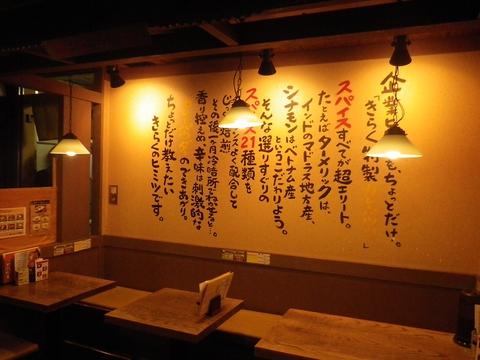 企業 も、ちょっとだけ。
「きらく特製 」
スパイスすべてが超エリート。
たとえばターメリックは、
インドのマドラス地方産、
シナモンはベトナム産
というこだわりよう。
そんな選りすぐりの
スパイス21種類を
よく配合して
その後一ヶ月冷暗所でねかすと…。
香り控えめ辛味は刺激的な
のできあがり。
ちょっとだけ教えたい
きらくのヒミツです。